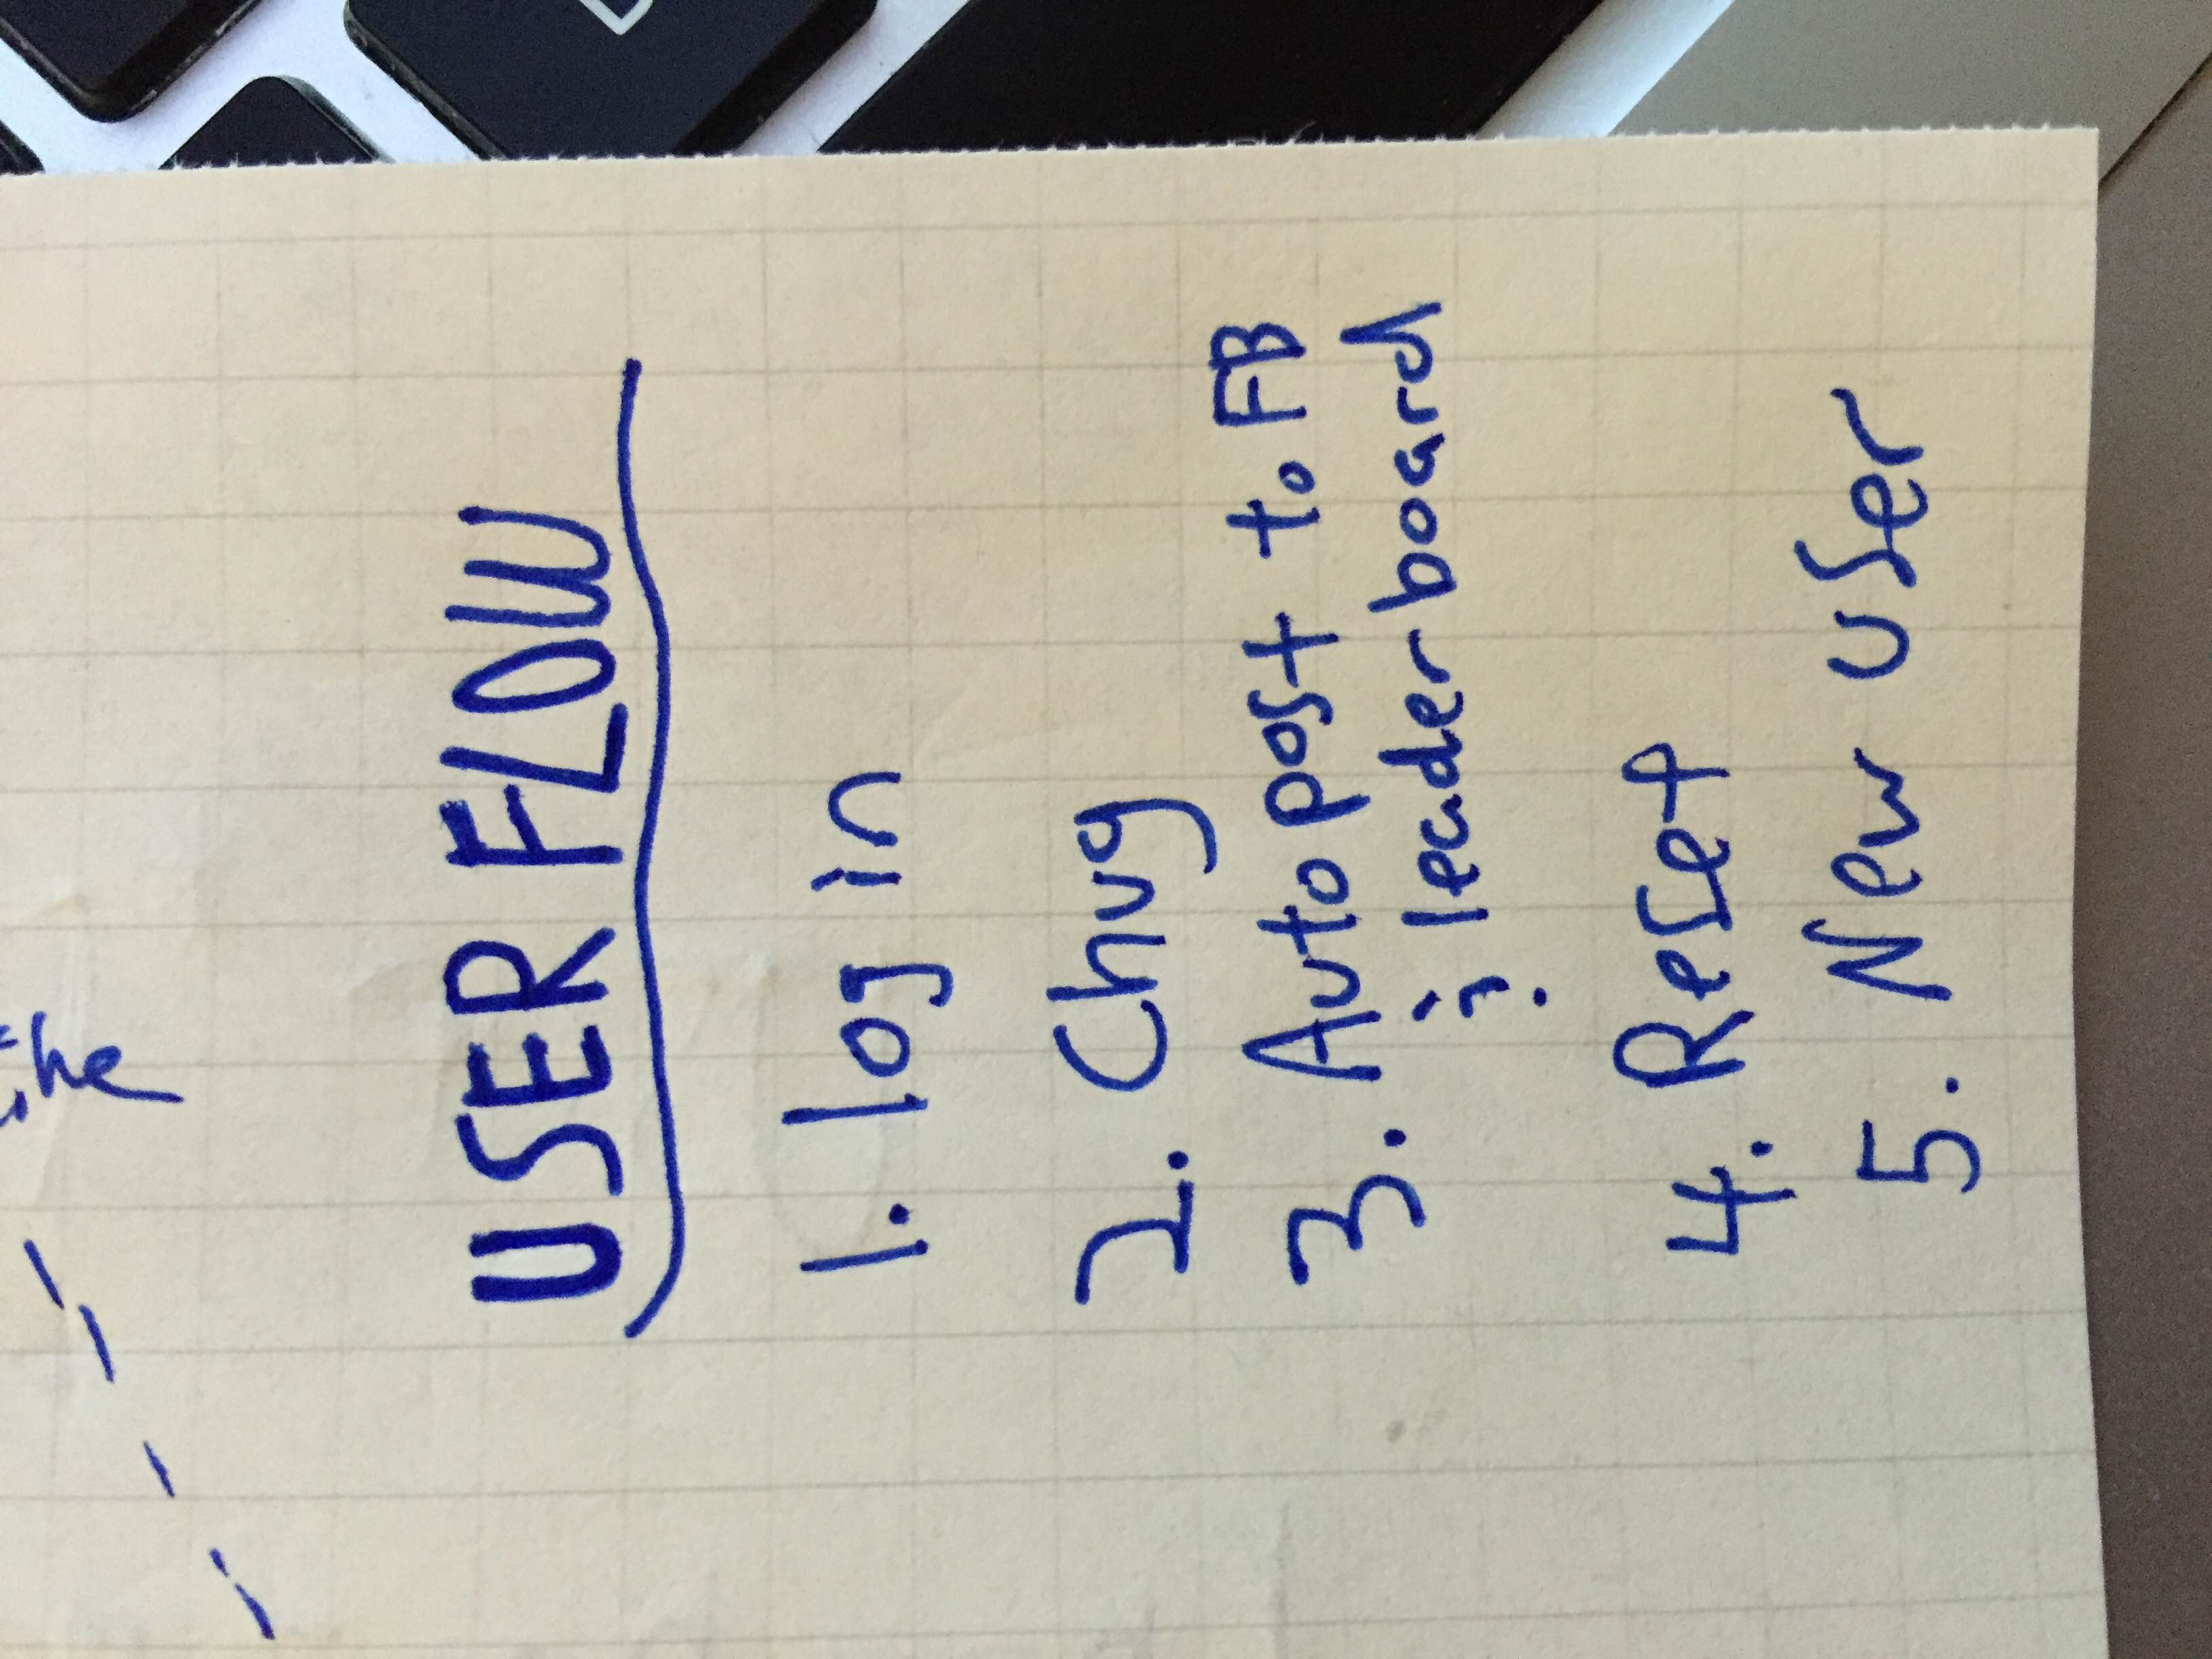 USER FLOW
1. log in
2. Chug
3. Auto post to FB
& leaderboard
4. Reset
5. New user